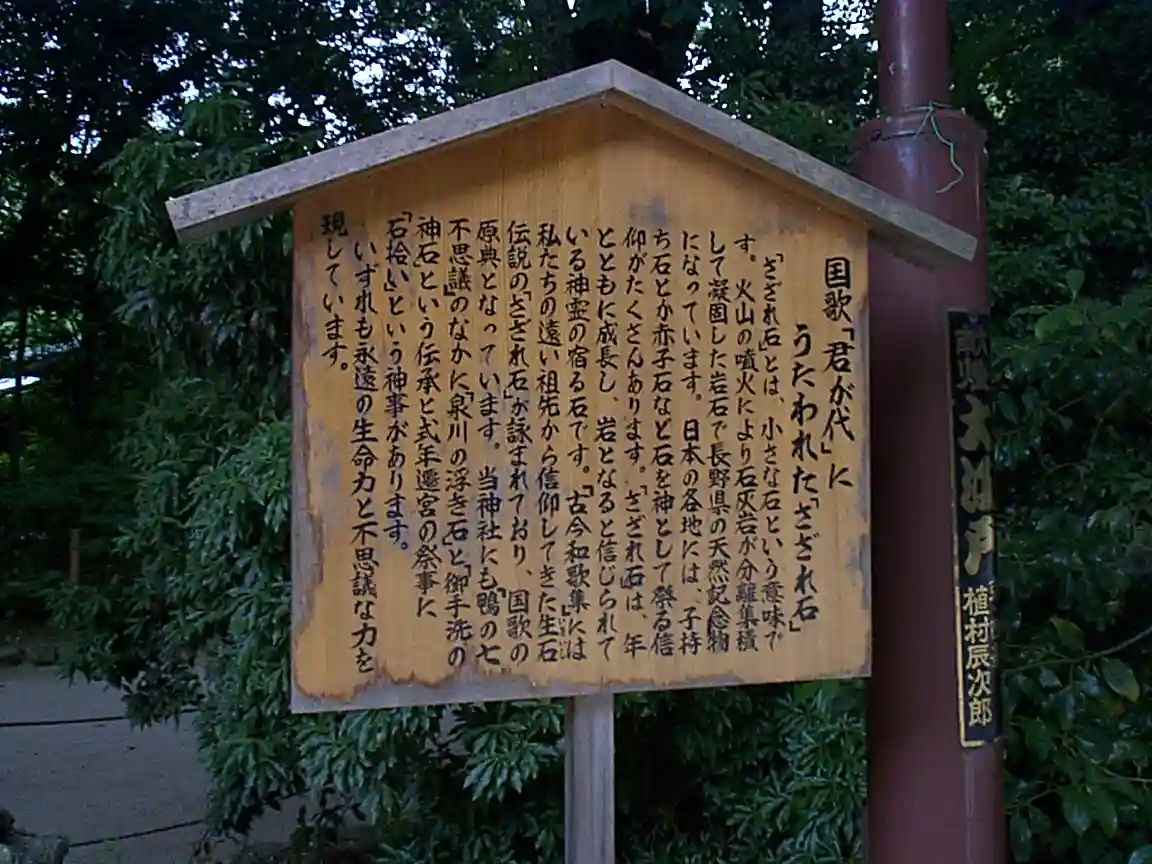 国歌「君が代」に
うたわれた「さざれ石」
「さざれ石」とは、小さな石という意味で
す。火山の噴火により石灰岩が分離集積
して凝固した岩石で長野県の天然記念物
になっています。日本の各地には、子持
ち石とか赤子石など石を神として祭る信
仰がたくさんあります。「さざれ石は、年
とともに成長し、岩となると信じられて
いる神霊の宿る石です。「古今和歌集」には
私たちの遠い祖先から信仰してきた生石
伝説の「さざれ石」が詠まれており、国歌の
原典となっています。当神社にも「鴨の七
不思議」のなかに「泉川の浮き石」と「御手洗の
神石」という伝承と式年遷宮の祭事に
「石拾い」という神事があります。
いずれも永遠の生命力と不思議な力を
現しています。
献燈
植村辰次郎